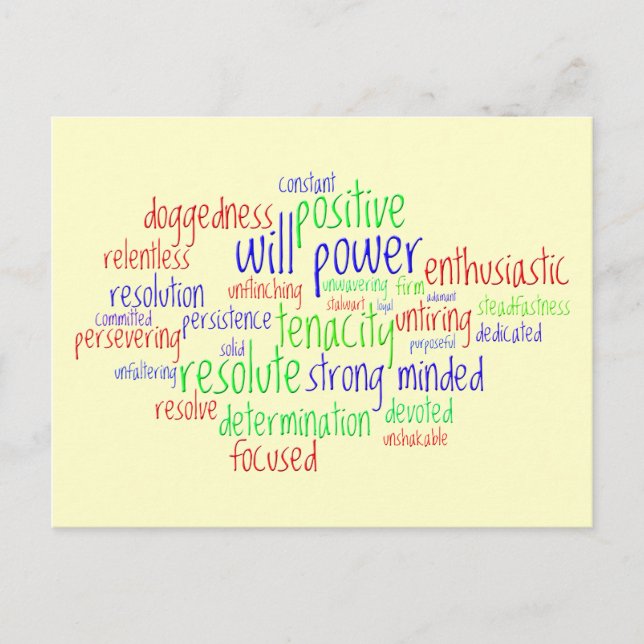 constant
doggedness
positive
relentless
will power
enthusiastic
resolution
unflinching
unwavering
firm
adamant
steadfastness
committed
persistence
stalwart
loyal
tenacity
untiring
persevering
solid
purposeful
dedicated
unfaltering
resolute
strong minded
resolve
determination
devoted
unshakable
focused